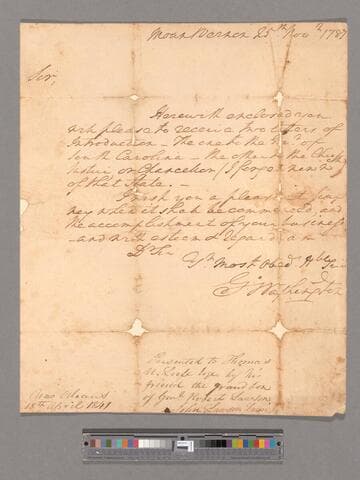 Mount Vernon 25th Nov.r 1787
Sir,
Herewith enclosed you
will please to receive two letters of
Introduction — The one to the Gov.r of
South Carolina — the other to the Chief
Justice, or Chancellor (I forget which)
of that State. —
I wish you a pleasant Jour-
ney when it shall be commenced, and
the accomplishment of your business
— and with esteem & regard I am
D.r Sir
Yr. Most Obed.t H.ble Ser.
G.o Washington
Presented to Thomas
by his
friend the grandson
of Gen.l Robert Lawson
John Lawson
New Orleans
18th April 1841